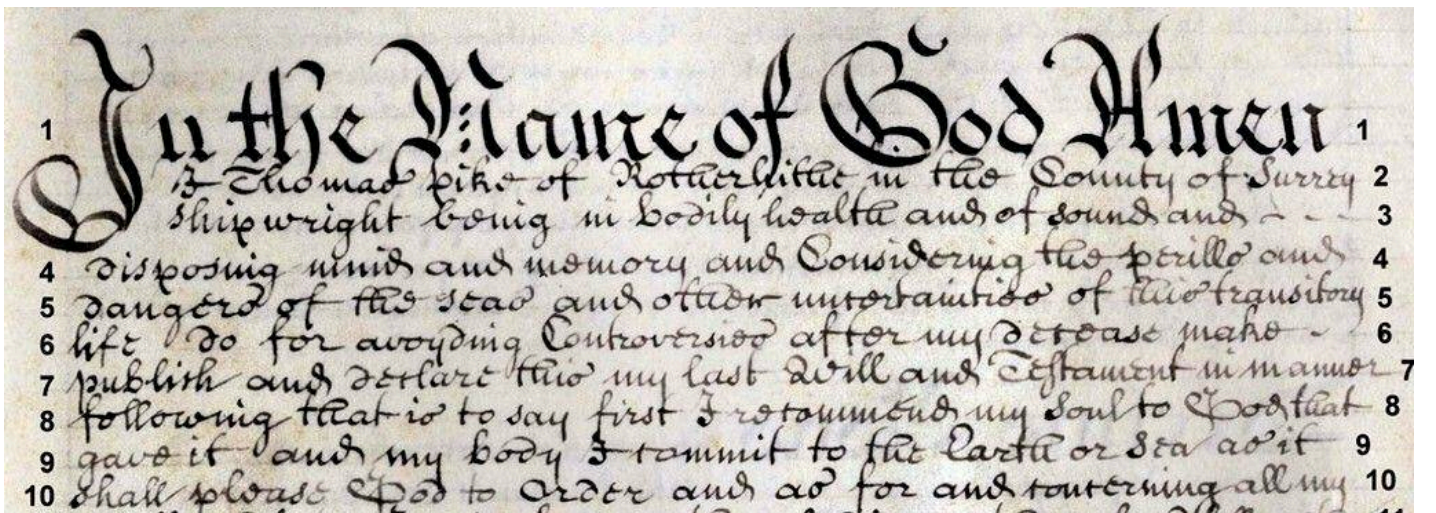 1 In the Name of God Amen 1
I Thomas Pike of Rotherhithe in the County of Surrey 2
Shipwright being in bodily health and of sound and - - - 3
4 disposing mind and memory and Considering the perills and 4
5 dangers of the seas and other uncertainties of this transitory 5
6 life do for avoyding Controversies after my decease make - 6
7 publish and declare this my last Will and Testament in manner 7
8 following that is to say first I recommend my Soul to God that 8
9 gave it and my body I commit to the Earth or Sea as it 9
10 shall please God to Order and as for and concerning all my 10